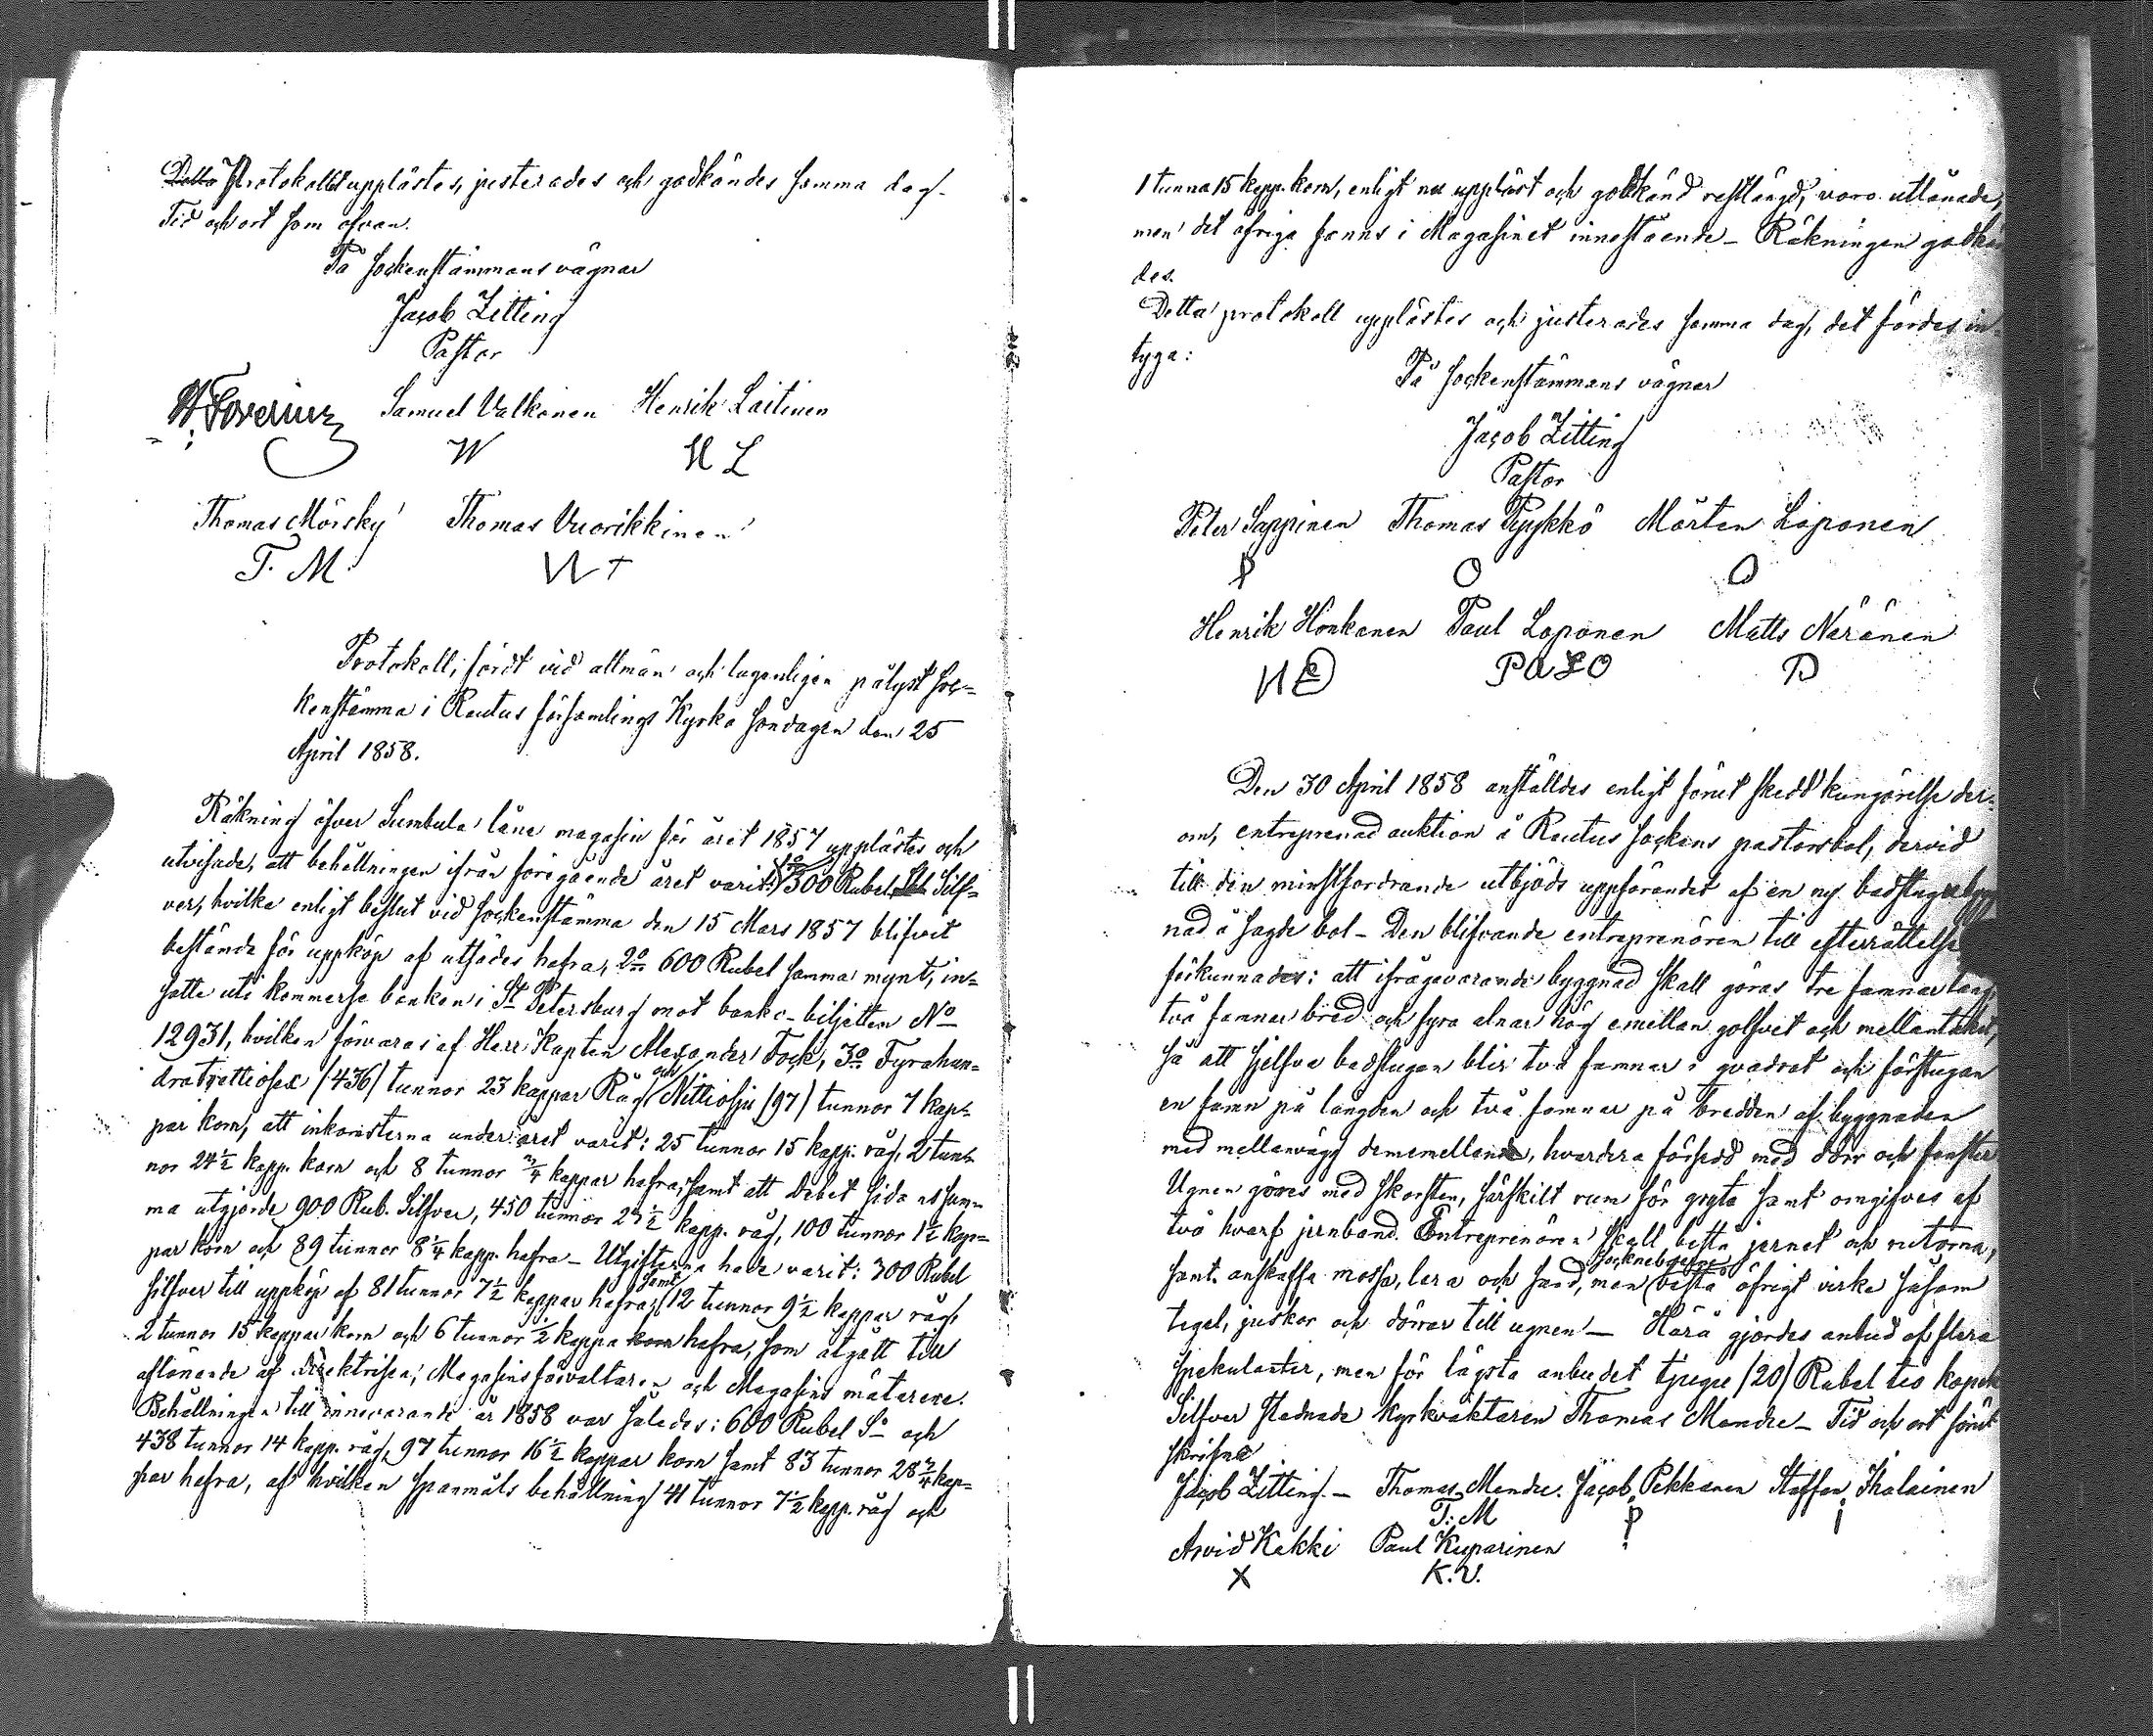 Protokollet upplästes, justerades och godkändes samma dag.
Tid och ort som ofvan.
På Sockenstämmans vägnar
Jacob Zitting
Pastor
Samuel Valkonen Henrik Laitinen
W H L
Thomas Mörsky Thomas Vuorikkinen
T. M.
Protokoll, fördt vid allmän och lagenligen pålyst Soc-
kenstämma i Rautus församlings Kyrka Söndagen den 25
April 1858.
Räkning öfver Sumbula låne magasin för året 1857 upplästes och
utvisade, att behållningen ifrån föregående året varit: 1o 300 Rubel Silf-
ver, hvilka enligt beslut vid Sockenstämma den 15 Mars 1857 blifvit
bestånde för uppköp af utsädes hafra, 2o 600 Rubel samma mynt, in-
satte uti kommerse banken i St Petersburg mot banko-biljetten No
12931, hvilken förvaras af Herr Kapten Alexander Fock, 3o Fyrahun-
dratrettiosex (436) tunnor 23 kappar Råg och Nittiosju (97) tunnor 7 kap-
par korn, att inkomsterna under året varit: 25 tunnor 15 kapp. råg, 2 tun-
nor 24 1/2 kapp. korn och 8 tunnor 3/4 kappar hafra, samt att Debet sidans sum-
ma utgjorde 900 Rub. Silfver, 450 tunnor 23 1/2 kapp. råg, 100 tunnor 1 1/2 kap-
par korn och 89 tunnor 8 1/4 kapp. hafra – Utgifterna hava varit: 300 Rubel
silfver till uppköp af 81 tunnor 7 1/2 kappar hafra, samt 12 tunnor 9 1/2 kappar råg,
2 tunnor 15 kappar korn och 6 tunnor 1/2 kappa korn hafra, som åtgått till
aflönande af Direktrisen, Magasinsförvaltaren och Magasins mätarene.
Behållningen till innevarande år 1858 var således: 600 Rubel Sr och
438 tunnor 14 kapp. råg, 97 tunnor 16 1/2 kappar korn samt 83 tunnor 28 3/4 kap-
par hafra, af hvilken spanmåls behållning 41 tunnor 7 1/2 kapp. råg och
1 tunna 15 kapp. korn, enligt nu uppläst och godkänd restlängd, voro utlånade,
men det öfriga fanns i Magasinet innestående – Räkningen godkän
des.
Detta protokoll upplästes och justerades samma dag, det fördes in-
tyga:
På Sockenstämmans vägnar
Jacob Zitting
Pastor
Peter Sappinen Thomas Pyykkö Mårten Loponen
Henrik Honkanen Paul Loponen Matts Näränen
PALO
Den 30 April 1858 anställdes enligt förut skedd kungörelse der-
om, entreprenad auktion å Rautus Sockens pastorsbol, dervid
till den minstfordrande utbjöds uppförandet af en ny badstugubygg
nad å sagde bol – Den blifvande entreprenören till efterrättelse
förkunnades: att ifrågavarande byggnad skall göras tre famnar lång,
två famnar bred och fyra alnar hög emellan golfvet och mellantaket,
så att sjelfva badstugan blir två famnar i qvadrat och förstugan
en famn på längden och två famnar på bredden af byggnaden
med mellanvägg dememellan, hvardera försedd med dörr och fenster
Ugnen göres med skorsten, särskilt rum för gryta samt omgifves af
två hvarf jernband. Entreprenören skall bestå jernet och rutorna,
samt anskaffa mossa, lera och sand, men Socknoboerne bestå öfrigt virke såsom
tegel, juskor och dörrar till ugnen – Härå gjordes anbud af flera
spekulanter, men för lägsta anbudet tjugu (20) Rubel tio kopek
Silfver stadnade kyrkväktaren Thomas Mondre – Tid och ort förut
skrifne
Jacob Zitting. – Thomas Mondre. Jacob Pekkanen Staffan Ihalainen
T: M
Arvid Kekki Paul Kuparinen
X K. V.